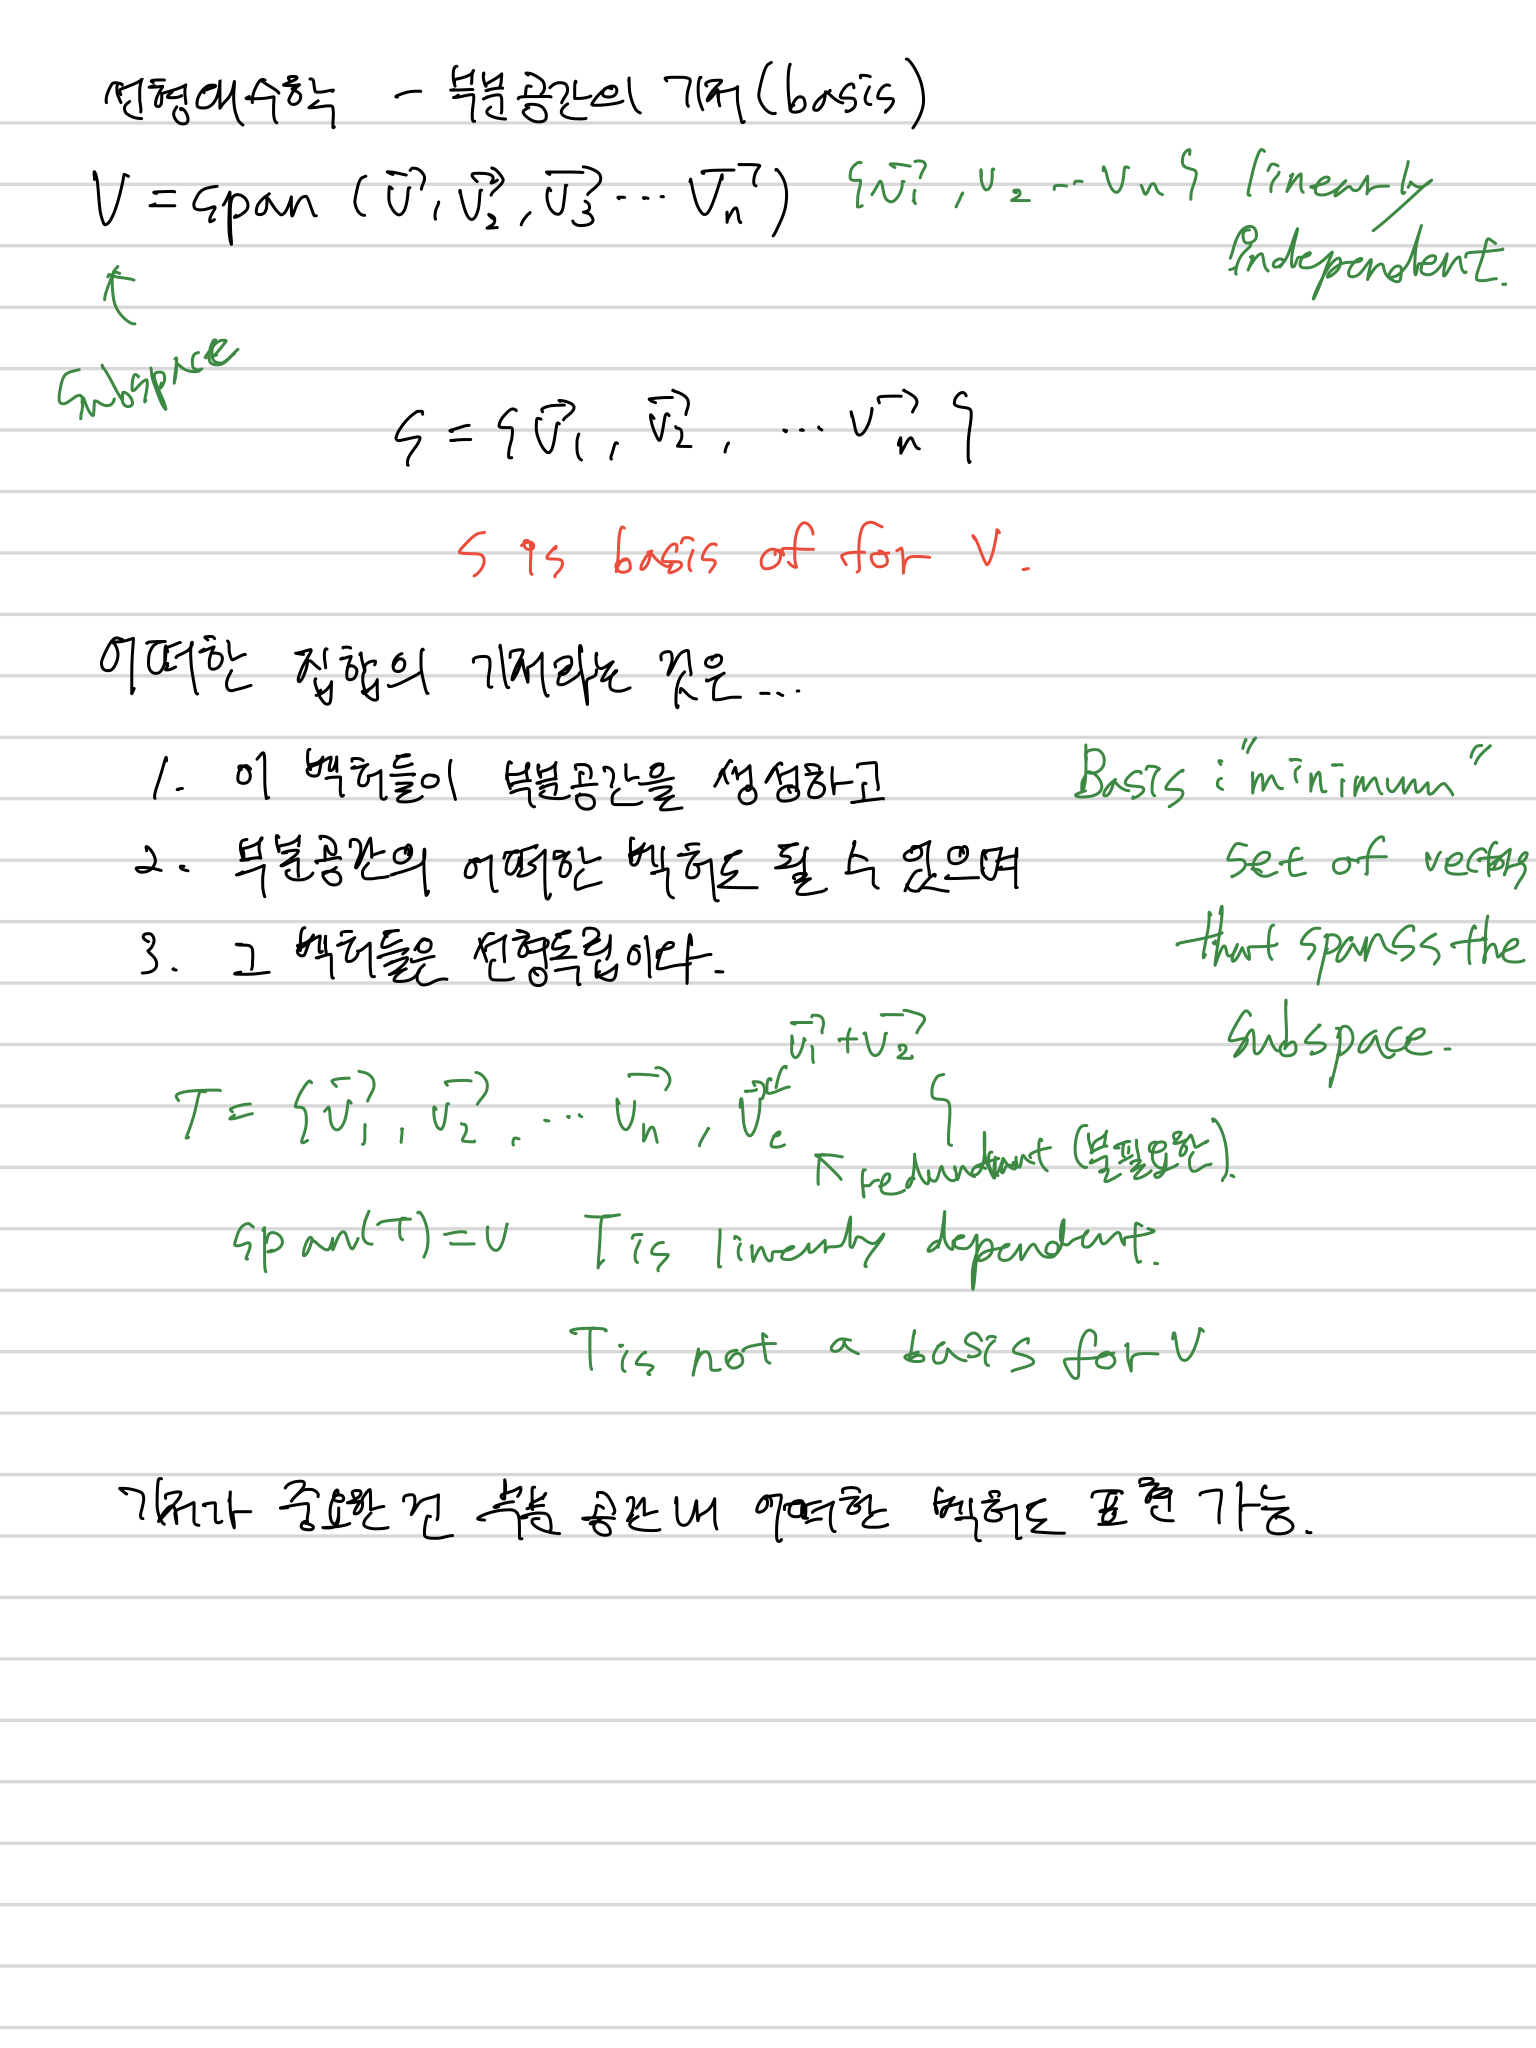 선형대수학 - 부분공간의 기저(basis)
V = span (v⃗, v⃗₂, v⃗₃ ... v⃗ₙ) {v⃗₁, v₂ ... vₙ} linearly
independent.
subspace
S = {v⃗₁, v⃗₂, ... v⃗ₙ}
S is basis of for V.
어떠한 집합의 기저라는 것은...
1. 이 벡터들이 부분공간을 생성하고
2. 부분공간의 어떠한 벡터도 될 수 있으며
3. 그 벡터들은 선형독립이다.
Basis : "minimum"
set of vectors
that spanss the
subspace.
v⃗₁ + v⃗₂
T = {v⃗₁, v⃗₂, ... v⃗ₙ, v⃗ₑ }
redundant (불필요한).
span(T) = V T is linearly dependent.
T is not a basis for V
기저가 중요한 건 부분 공간 내 어떠한 벡터도 표현 가능.